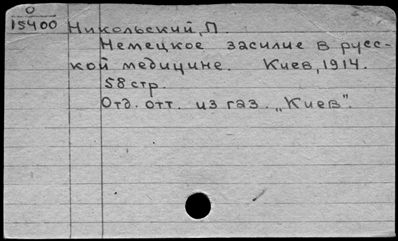 О
15400
Никольский, П.
Немецкое засилие в русс-
кой медицине. Киев, 1914.
58 стр.
Отд. отт. из газ. „Киев".